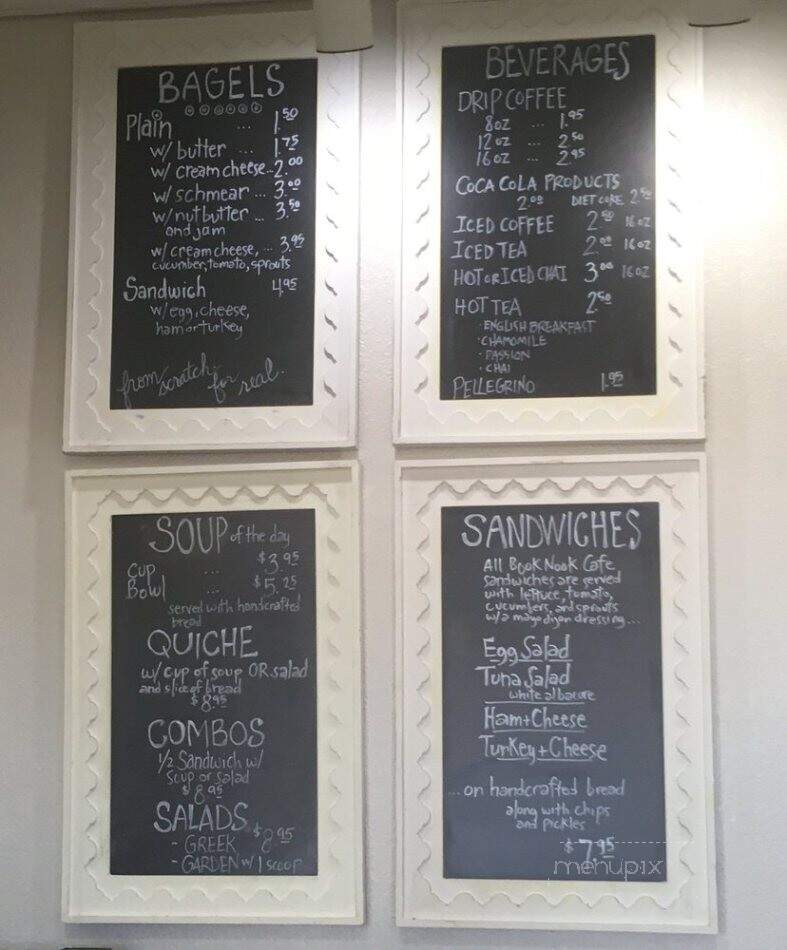 BAGELS
Plain ... 1.50
w/ butter ... 1.75
w/ cream cheese... 2.00
w/ schmear ... 3.00
w/ nut butter ... 3.50
and jam
w/ cream cheese, ... 3.95
cucumber, tomato, sprouts
Sandwich 4.95
w/ egg, cheese,
ham or turkey
from scratch for real.
BEVERAGES
DRIP COFFEE
8oz ... 1.95
12oz ... 2.50
16oz ... 2.95
COCA COLA PRODUCTS
2.00 DIET COKE 2.50
ICED COFFEE 2.50 16oz
ICED TEA 2.00 16oz
HOT or ICED CHAI 3.00 16oz
HOT TEA 2.50
· ENGLISH BREAKFAST
· CHAMOMILE
· PASSION
· CHAI
PELLEGRINO 1.95
SOUP of the day
Cup ... $3.95
Bowl ... $5.25
served with handcrafted
bread
QUICHE
w/ cup of soup OR salad
and slice of bread
$8.95
COMBOS
1/2 Sandwich w/
soup or salad
$8.95
SALADS $8.95
- GREEK
- GARDEN w/ 1 scoop
SANDWICHES
All Book Nook Cafe
sandwiches are served
with lettuce, tomato,
cucumbers, and sprouts
w/ a mayo dijon dressing...
Egg Salad
Tuna Salad
white albacore
Ham + Cheese
Turkey + Cheese
...on handcrafted bread
along with chips
and pickles
$7.95
menupix